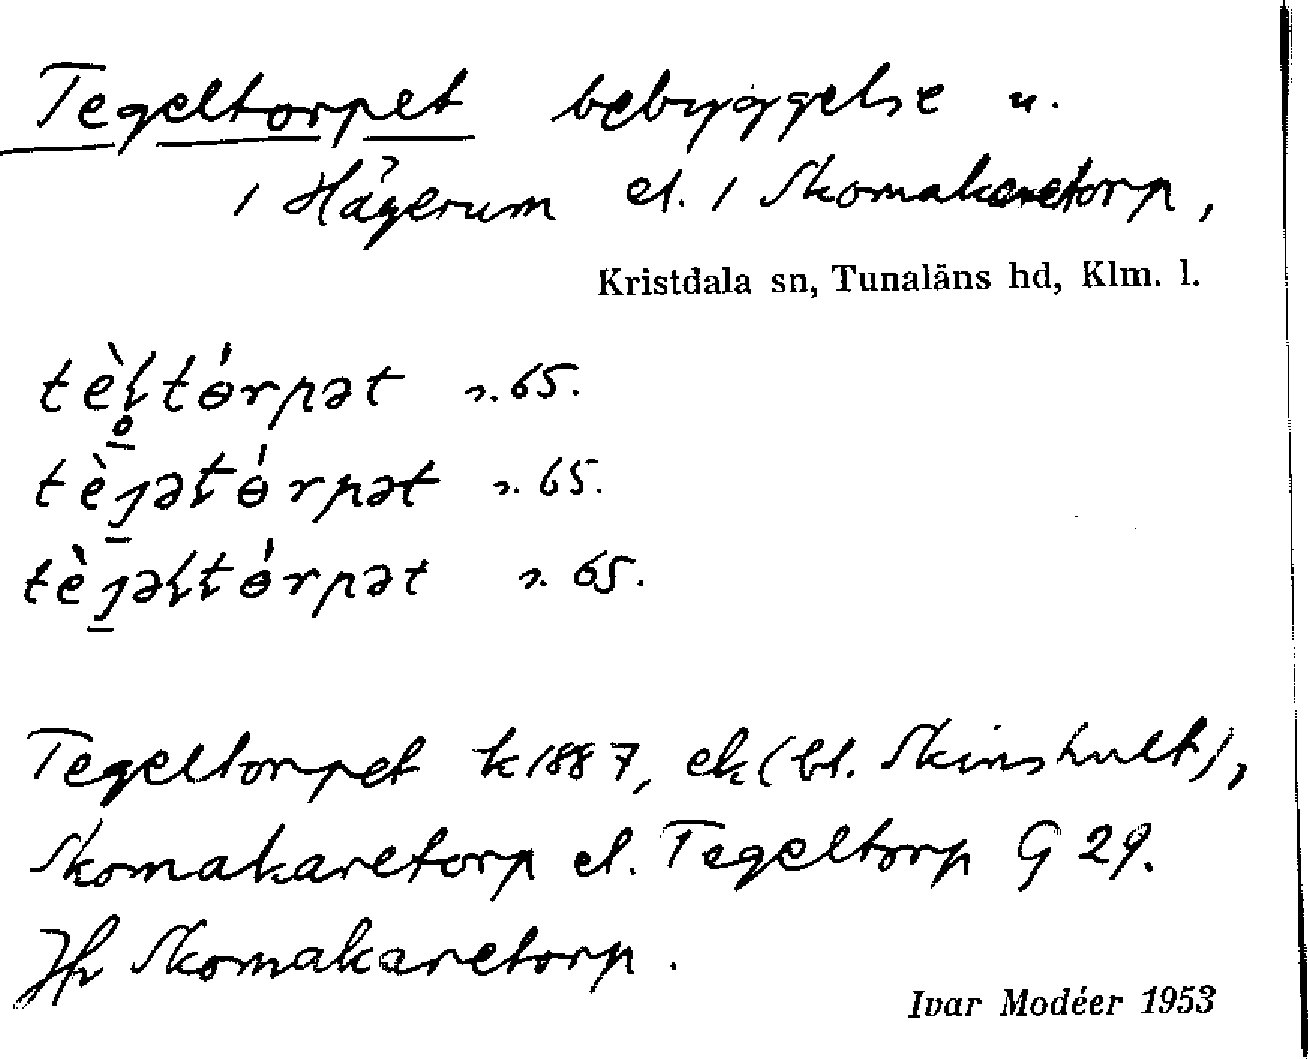 Tegeltorpet bebyggelse u.
/ Hägerum el. / Skomakaretorp,
Kristdala sn, Tunaläns hd, Klm. l.
s. 65.
s. 65.
s. 65.
Tegeltorpet k 1887, ek (bl. Skinshult),
Skomakaretorp el. Tegeltorp G 29.
Jfr Skomakaretorp.
Ivar Modéer 1953